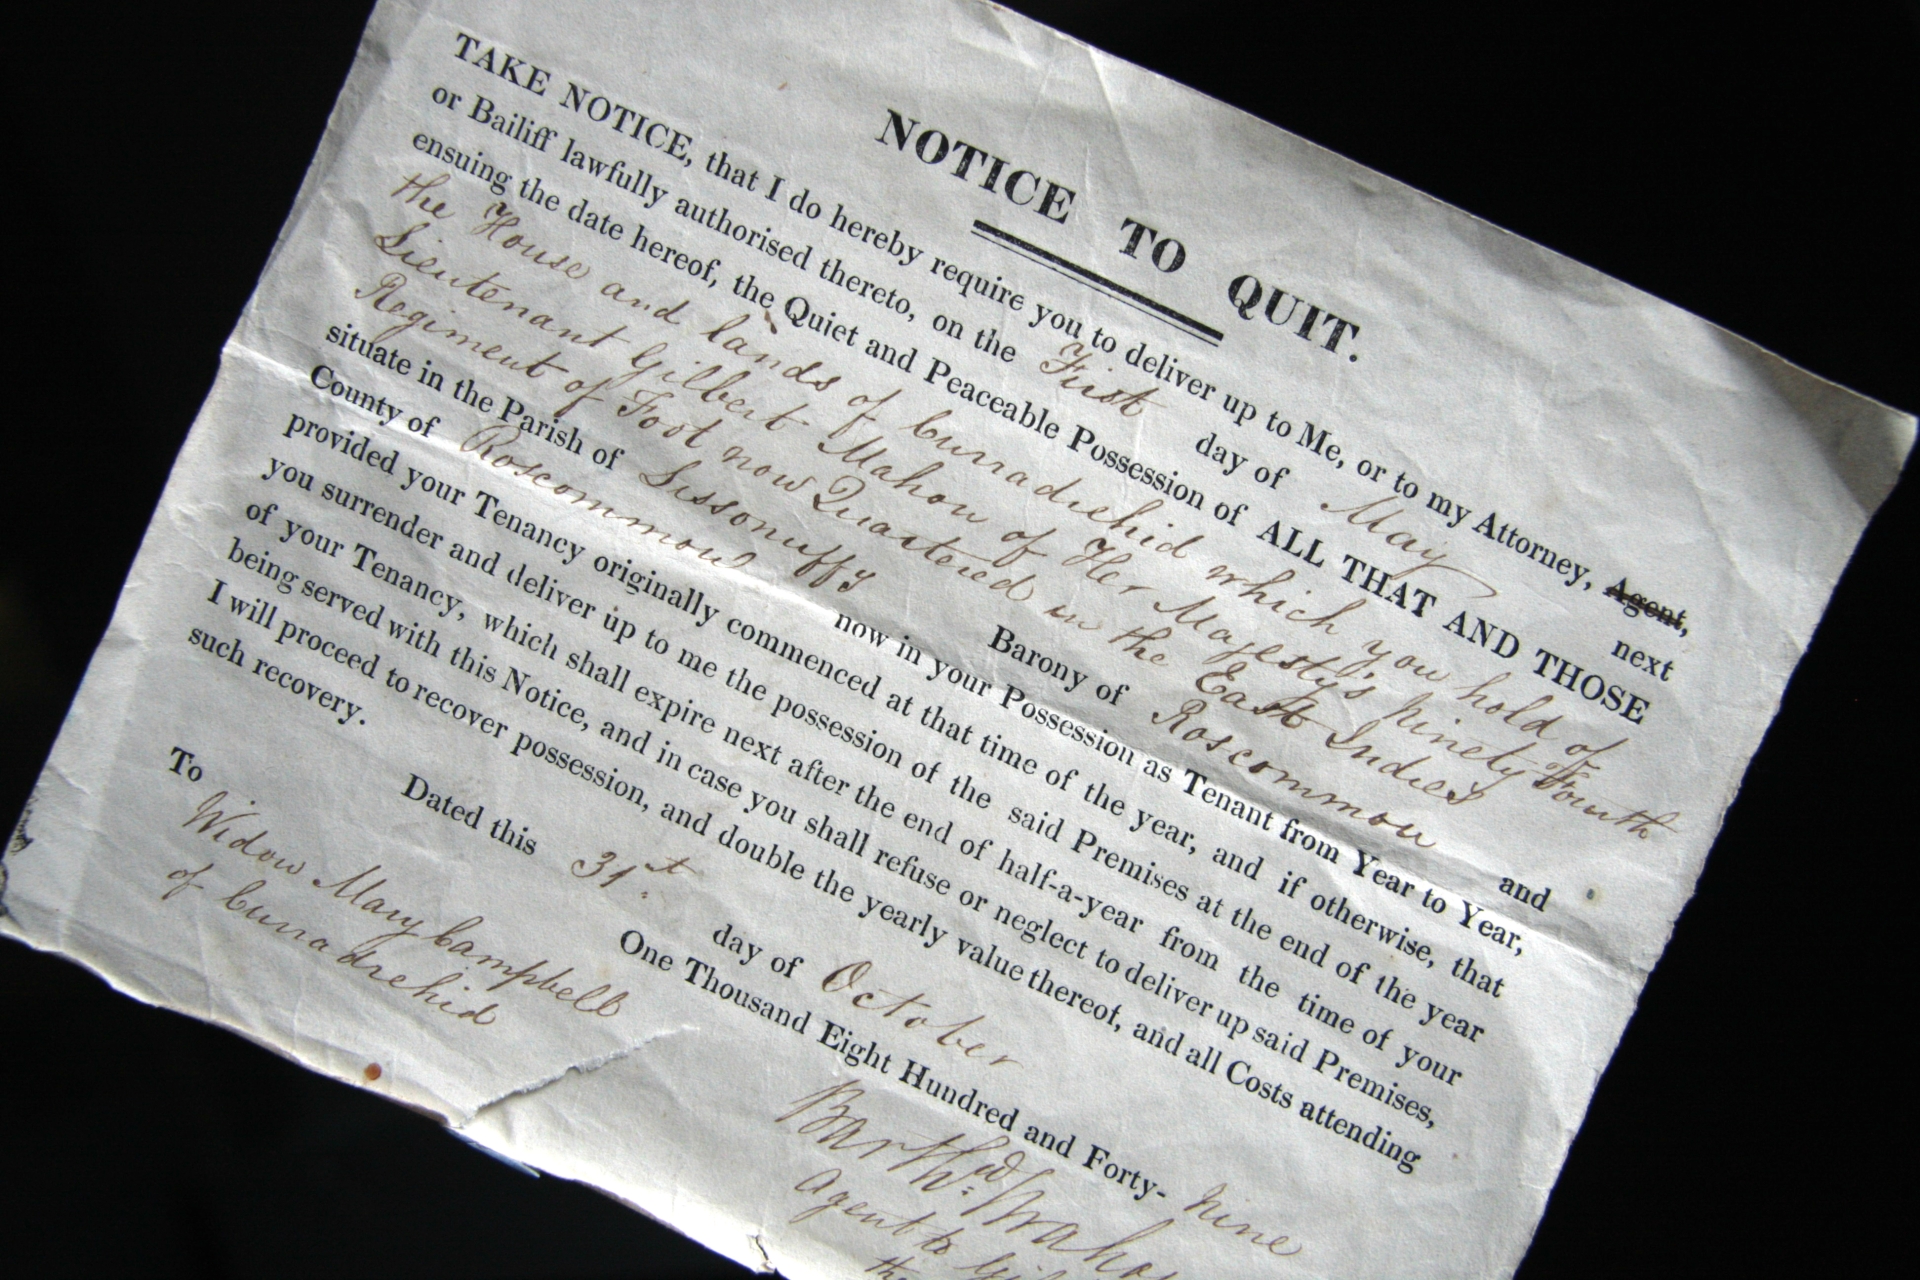 NOTICE TO QUIT.
TAKE NOTICE, that I do hereby require you to deliver up to Me, or to my Attorney, Agent,
or Bailiff lawfully authorised thereto, on the First day of May next
ensuing the date hereof, the Quiet and Peaceable Possession of ALL THAT AND THOSE
the House and lands of Curradrehid which you hold of
Lieutenant Gilbert Mahon of Her Majesty's Ninety Fourth
Regiment of Foot now Quartered in the East Indies
situate in the Parish of Lissonuffy Barony of Roscommon and
County of Roscommon now in your Possession as Tenant from Year to Year,
provided your Tenancy originally commenced at that time of the year, and if otherwise, that
you surrender and deliver up to me the possession of the said Premises at the end of the year
of your Tenancy, which shall expire next after the end of half-a-year from the time of your
being served with this Notice, and in case you shall refuse or neglect to deliver up said Premises,
I will proceed to recover possession, and double the yearly value thereof, and all Costs attending
such recovery.
Dated this 31st day of October
One Thousand Eight Hundred and Forty-Nine
To
Widow Mary Campbell
of Curradrehid
Mahon
Agent to